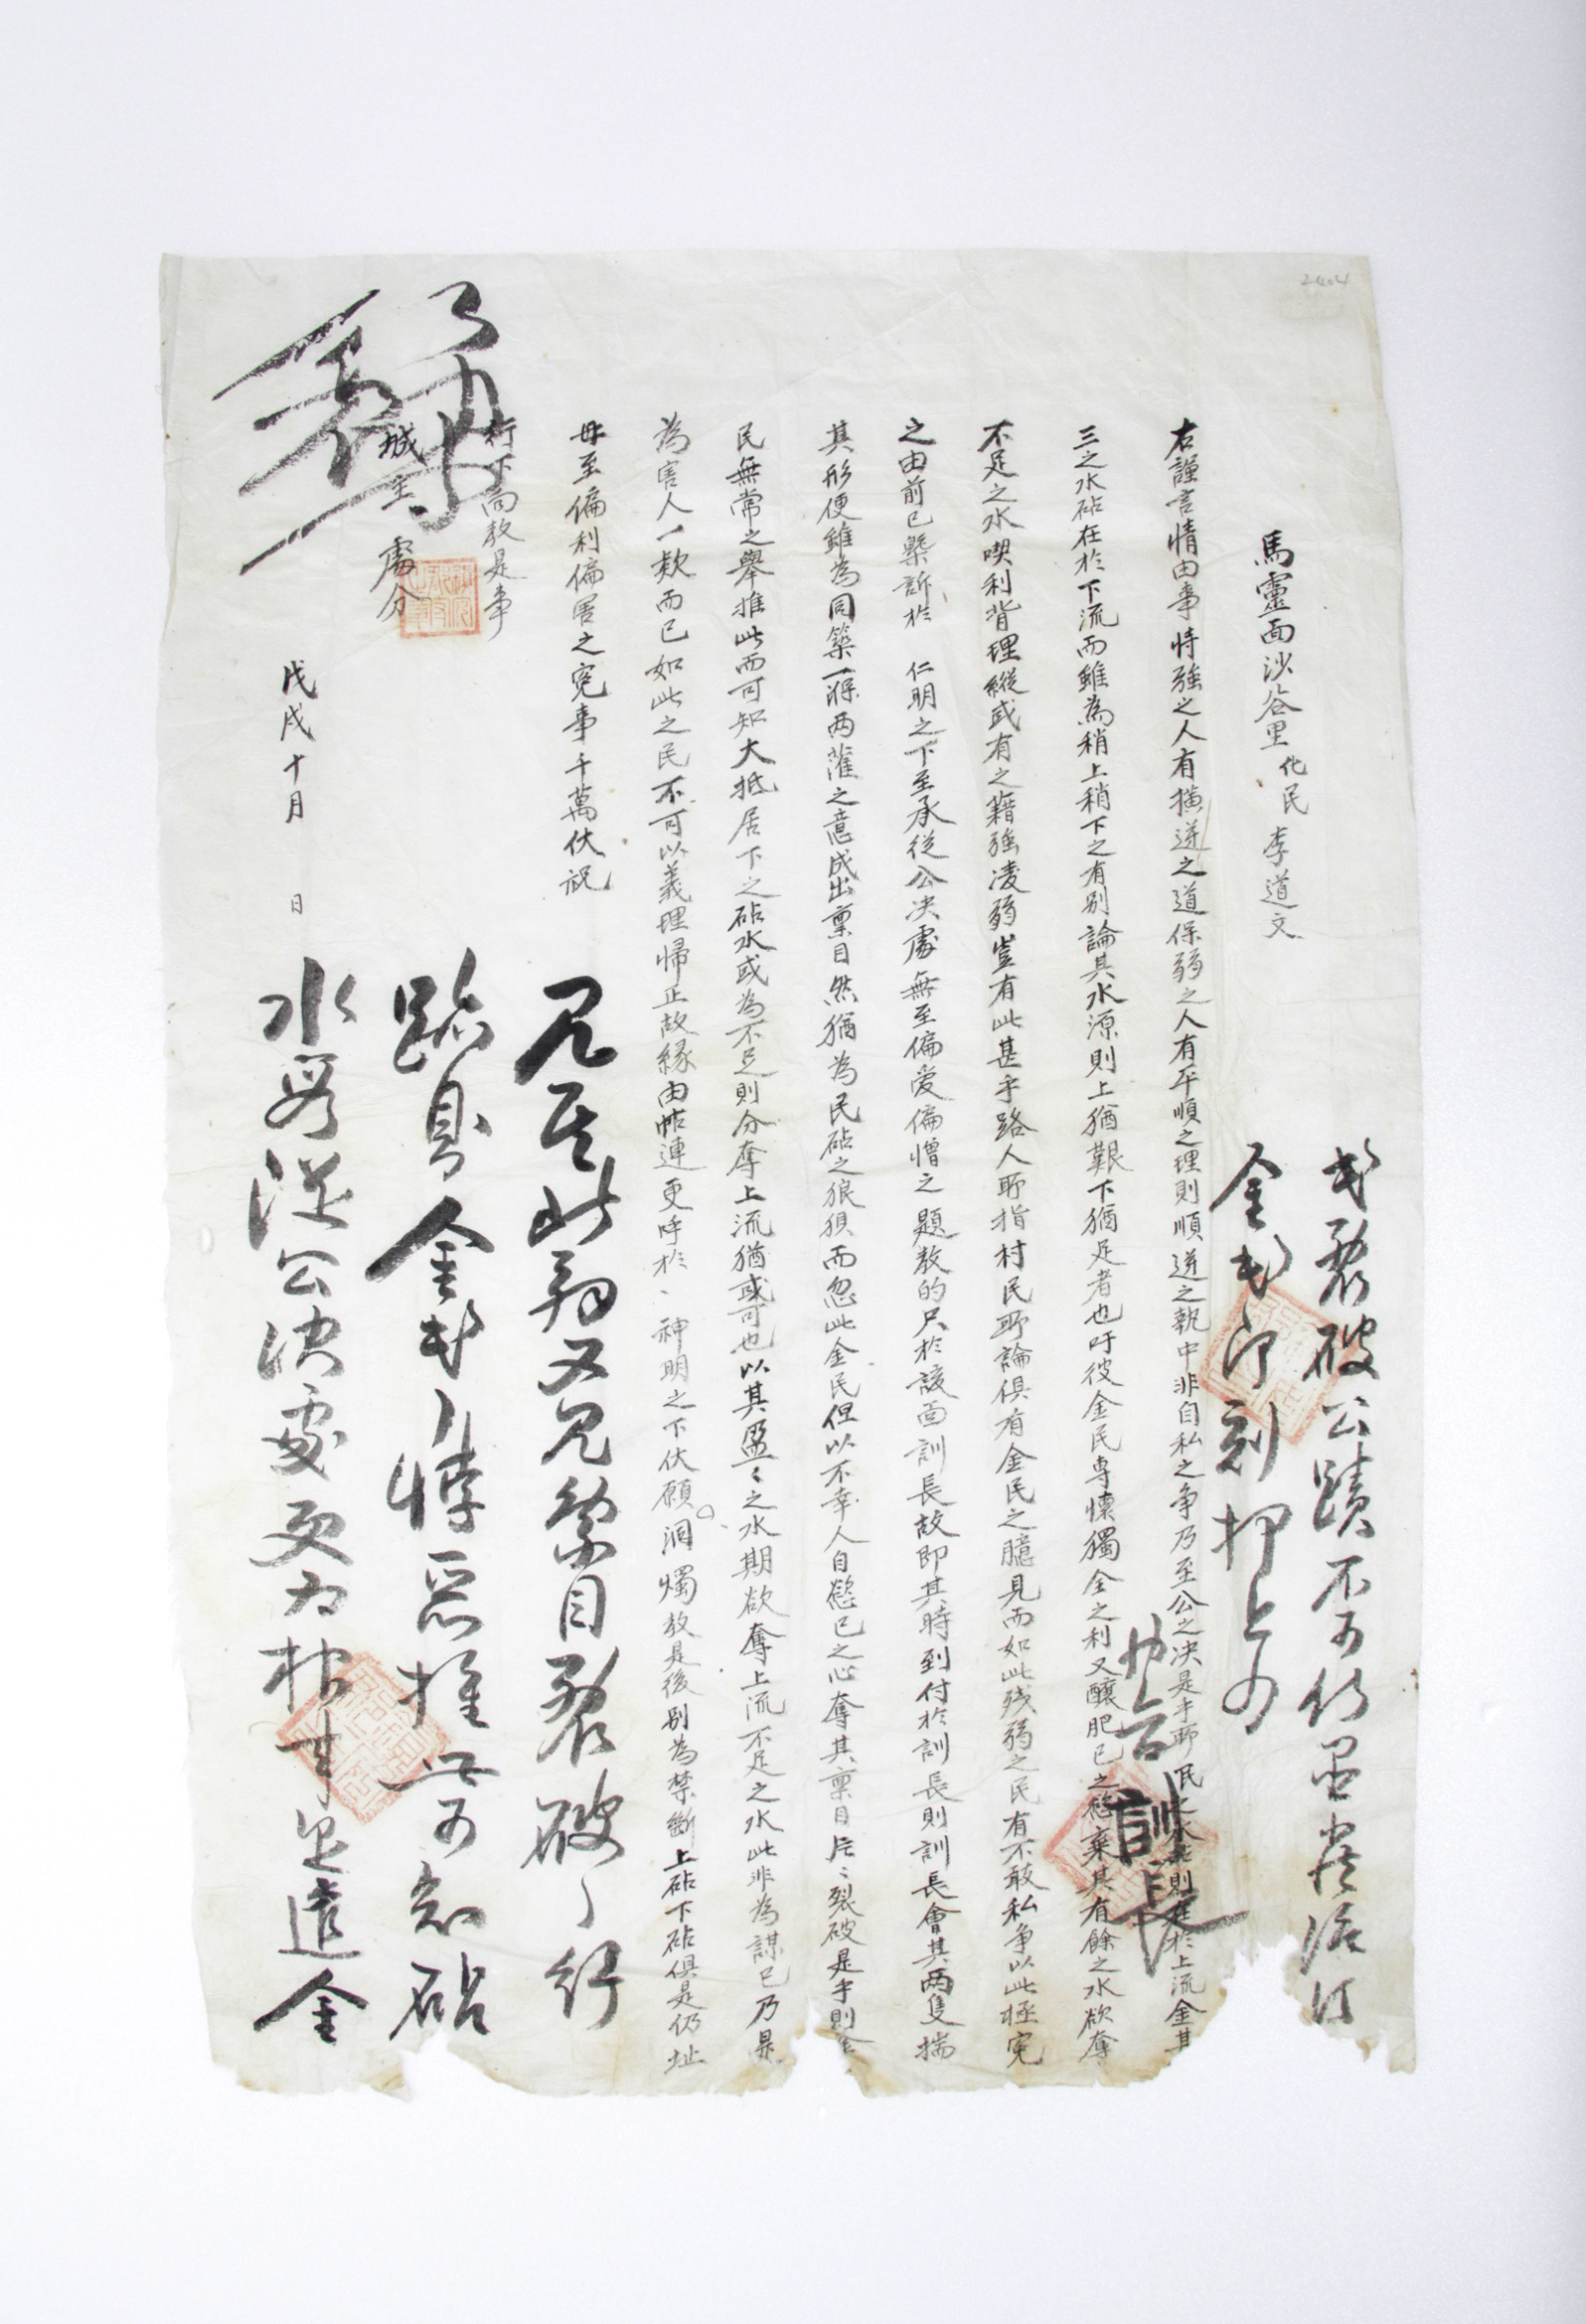 2404
馬靈面沙谷里化民李道文
右謹言情由事恃強之人有橫逆之道保弱之人有平順之理則順逆之執中非自私之争乃至公之决是乎耶民之水砧則在於上流金其
三之水砧在於下流而雖為稍上稍下之有别論其水源則上猶艱下猶足者也吁彼金民専懐獨全之利又釀肥已之慾棄其有餘之水欲奪
不足之水喫利背理縱或有之藉強凌弱豈有此甚乎路人耶指村民耶論俱有金民之臆見而如此残弱之民有不敢私争以此極寃
之由前已槩訴於 仁明之下至承從公决處無至偏愛偏憎之題教的只於該面訓長故即其時到付於訓長則訓長會其兩隻揣
其形便雖為同築一㳍两灌之意成出稟目然猶為民砧之狼狽而忽此金民但以不幸人自慾已之心奪其稟目片〻裂破是乎則
民無常之舉推此而可知大抵居下之砧水或為不足則分奪上流猶或可也以其盈〻之水期欲奪上流不足之水此非為謀已乃是
為害人一欵而已如此之民不可以義理歸正故緣由帖連更呼於 神明之下伏願洞燭教是後别為禁斷上砧下砧俱是仍址
毋至偏利偏害之寃事千萬伏祝
行下向教是事
城主 處分
戊戌十月 日
見其此，又見稟目裂破，行
跡則金民之悖惡推此可知砧
水段從公决處更為措辞是遣金
民裂破公蹟不可仍置
金民即刻押上向
訓長